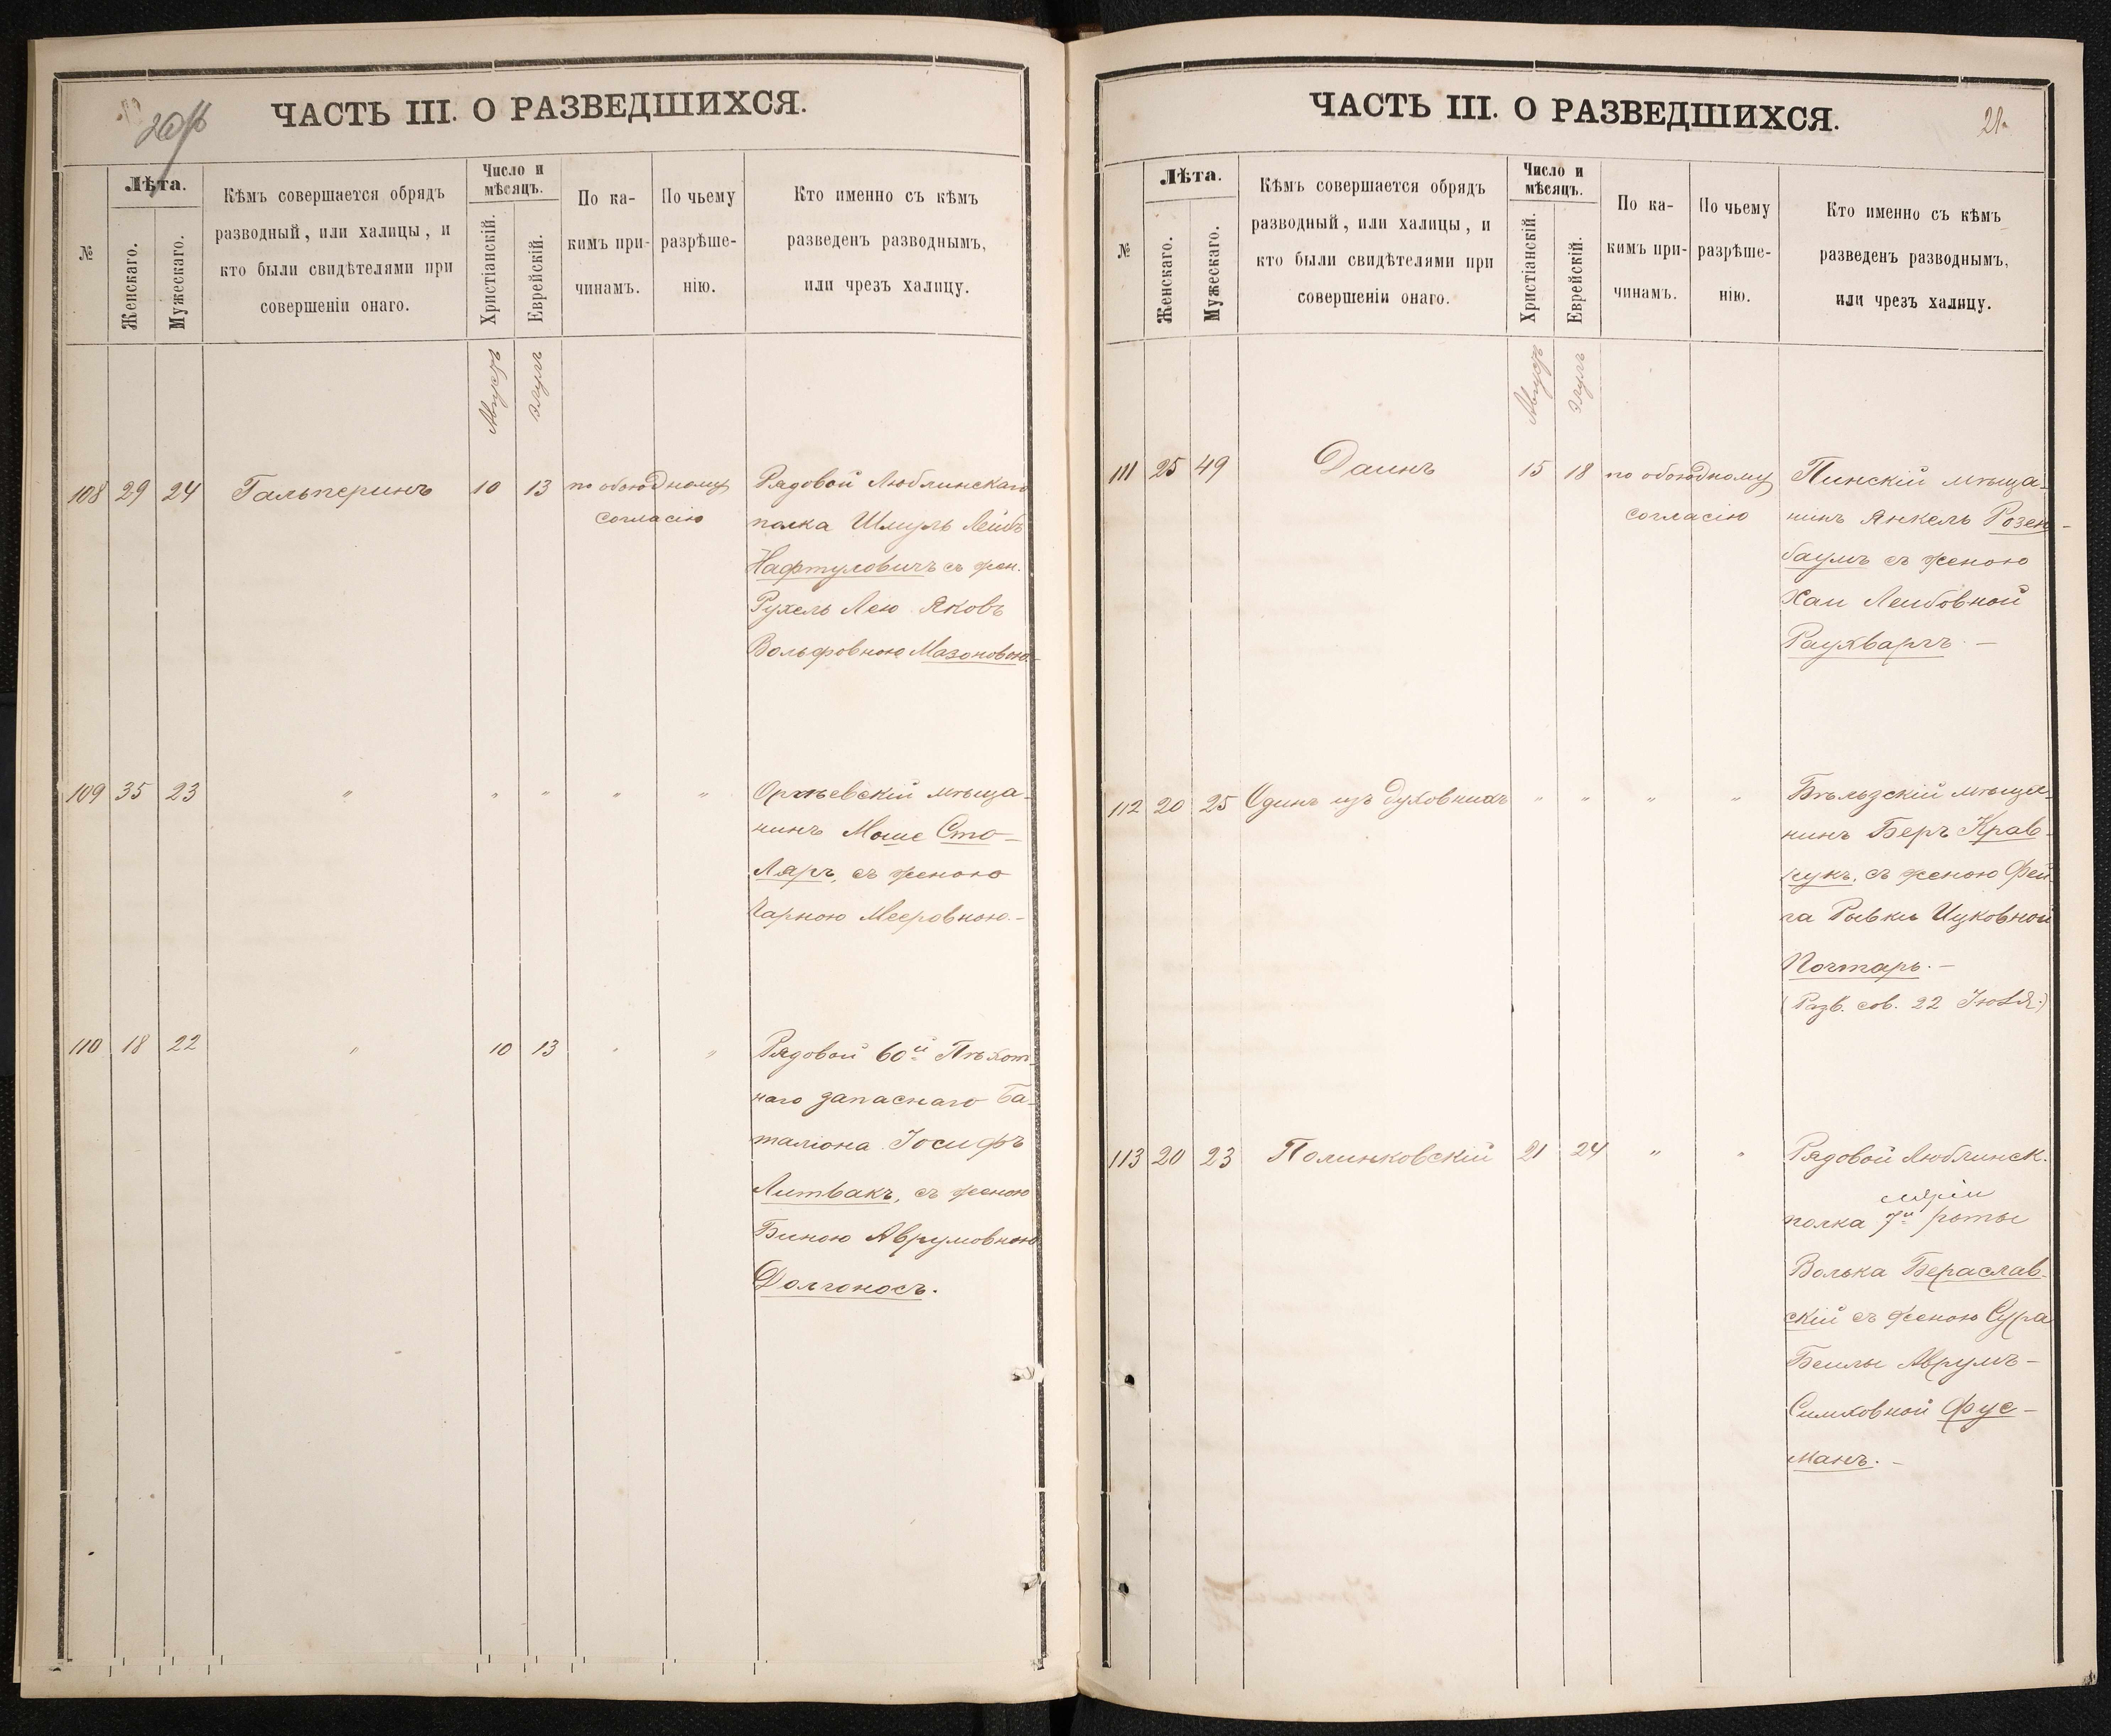 ЧАСТЬ III. О РАЗВЕДШИХСЯ.
№
Лѣта.
Женскаго.
Мужескаго.
Кѣмъ совершается обрядъ
разводный, или халицы, и
кто были свидѣтелями при
совершеніи онаго.
Число и
мѣсяцъ.
Христіанскій.
Еврейскій.
По ка-
кимъ при-
чинамъ.
По чьему
разрѣше-
нію.
Кто именно съ кѣмъ
разведенъ разводнымъ,
или чрезъ халицу.
Августъ
Элулъ
108 29 24 Гальперинъ 10 13 по обоюдному Рядовой Люблинскаго
согласію полка Шмуль Лейбъ
Нафтуловичъ съ жен.
Рухель Лею Яковъ
Вольфовною Мазоновою.
109 35 23 " " " " " Оргѣевскій мѣща-
нинъ Моше Сто-
ляръ, съ женою
Чарною Мееровною.-
110 18 22 " 10 13 " " Рядовой 60й Пѣхот-
наго запаснаго Ба-
таліона Іосифъ
Литвакъ, съ женою
Биною Аврумовною
Долгоносъ.
ЧАСТЬ III. О РАЗВЕДШИХСЯ.
21.
№
Лѣта.
Женскаго.
Мужескаго.
Кѣмъ совершается обрядъ
разводный, или халицы, и
кто были свидѣтелями при
совершеніи онаго.
Число и
мѣсяцъ.
Христіанскій.
Еврейскій.
По ка-
кимъ при-
чинамъ.
По чьему
разрѣше-
нію.
Кто именно съ кѣмъ
разведенъ разводнымъ,
или чрезъ халицу.
Августъ
Элулъ
111 25 49 Даинъ 15 18 по обоюдному Пинскій мѣща-
согласію нинъ Янкель Розен-
баумъ съ женою
Хаи Леибовной
Раухваргъ. -
112 20 25 Одинъ изъ духовныхъ " " " " Бѣльзскій мѣща-
нинъ Беръ Крав-
чукъ, съ женою Фей-
га Рывки Ицковной
Почтарь. -
(Разв. сов. 22 Іюля.)
113 20 23 Полинковскій 21 24 " " Рядовой Люблинск.
полка 7й роты
Волька Бераслав-
скій съ женою Сура
Беилы Аврумъ-
Симховной Фус-
манъ. -